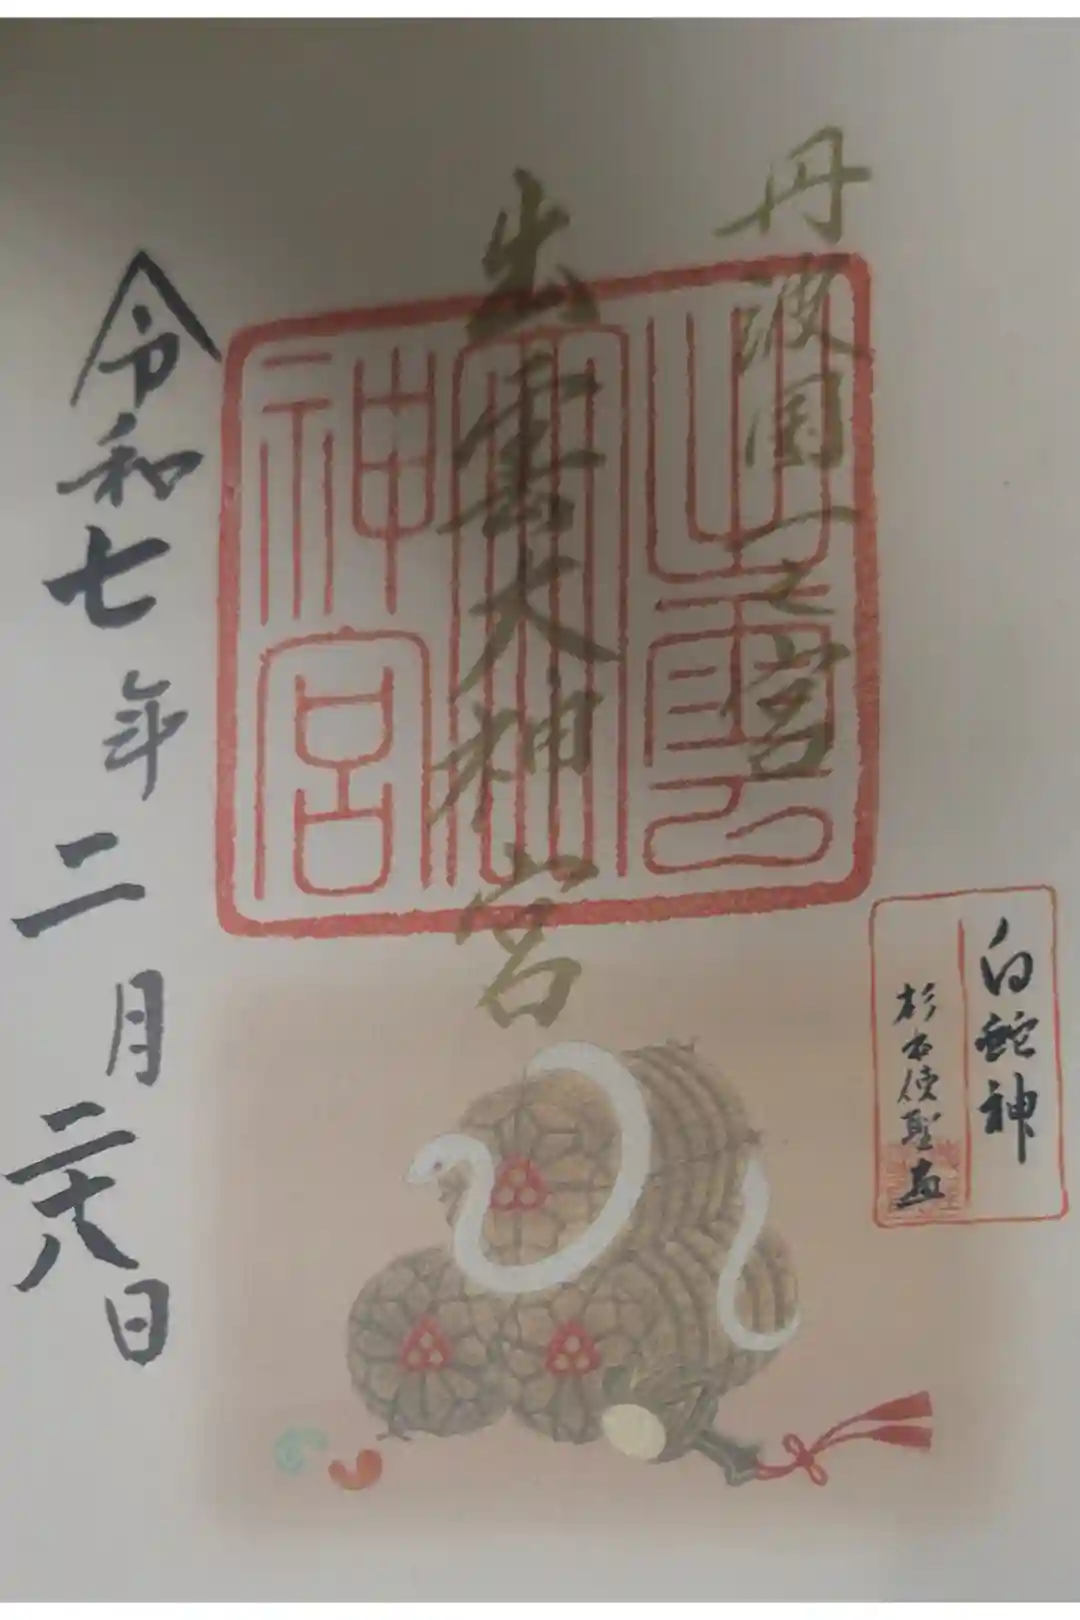 丹波国一之宮
出雲大神宮
出雲
大神
神宮
令和七年二月二十八日
白蛇神
杉本使聖画